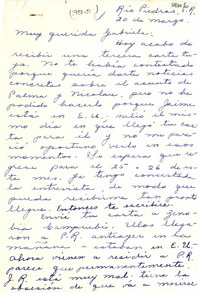 Río Piedras, P.R.
20 de marzo.
Muy querida Gabriela:
Hoy acabo de
recibir una tercera carta tu-
ya. No te había contestado
porque quería darte noticias
concretas sobre el asunto de
Palma y Nicolau, pero no he
podido hacerlo porque Jaime
está en E.U.; salió el mis-
mo día en que llegó tu car-
ta para él y no me pare-
ció oportuno verlo en esos
momentos. Yo espero que re-
gresa para el 25 - 26 de es-
te mes. Ya tengo concertada
la entrevista, de modo que
pueda recibirme tan pronto
llegue. Entonces te escribiré.
Envié tu carta a Zeno-
bia Camprubí. Ellos llega-
ron a P.R. antiayer en la
mañana - estaban en E.U. -
Ahora vienen a residir a P.R.
parece que permanentemente.
J.R. está muy mal: tiene la
obsesión de que va a morirse